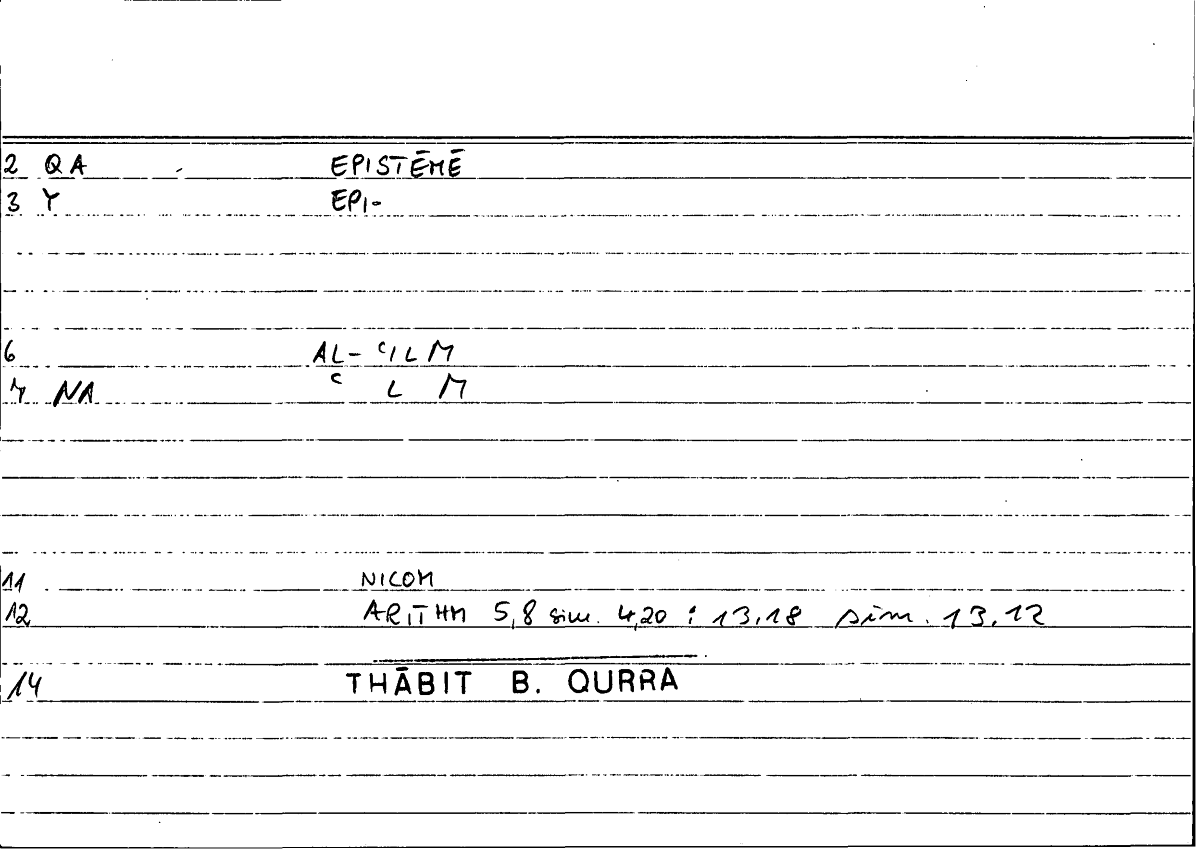 2 QA EPISTĒMĒ
3 Y EPI-
6 AL- ʿILM
7 NA ʿ L M
11 NICOM
12 ARITHM 5,8 sim. 4,20 : 13,18 sim. 13,12
14 THĀBIT B. QURRA